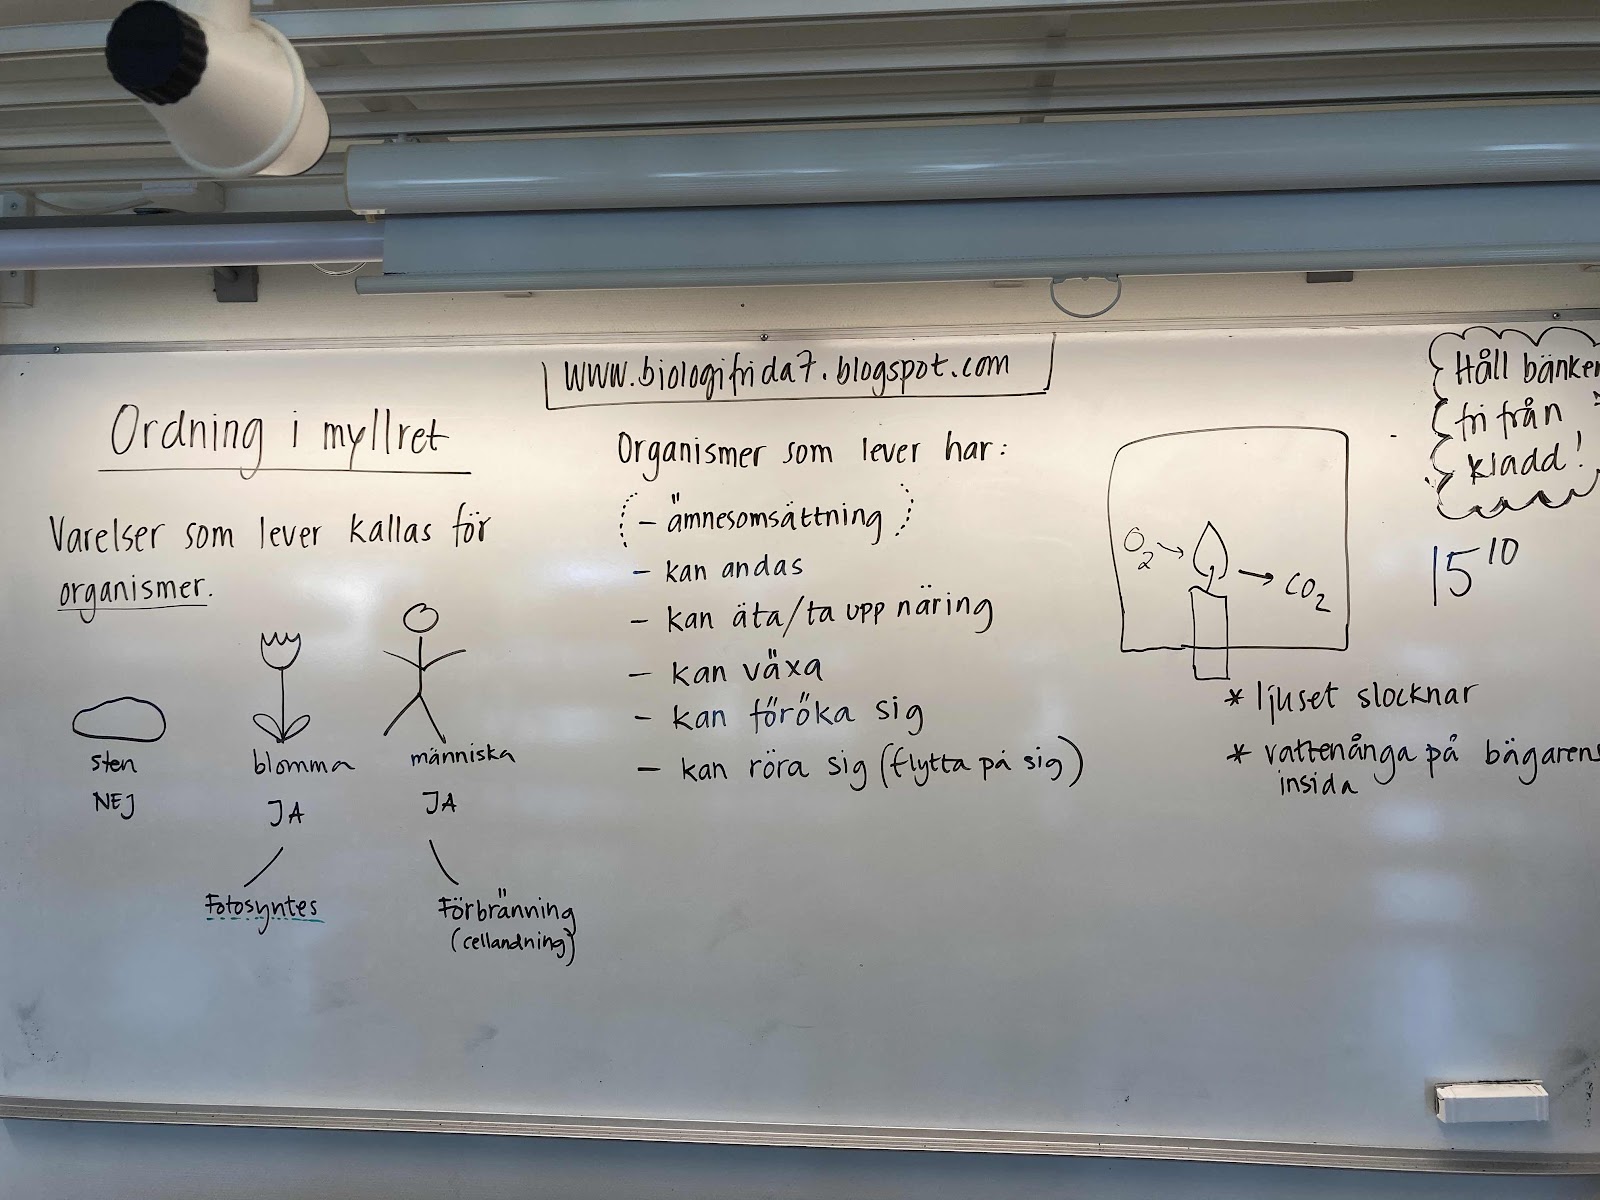 www.biologifrida7.blogspot.com
Ordning i myllret
Varelser som lever kallas för
organismer.
sten
blomma
människa
NEJ
JA
JA
Fotosyntes
Förbränning
(cellandning)
Organismer som lever har:
- ämnesomsättning
- kan andas
- kan äta/ta upp näring
- kan växa
- kan föröka sig
- kan röra sig (flytta på sig)
O2 → → CO2
* ljuset slocknar
* vattenånga på bägarens
insida
Håll bänken
fri från
kladd!
15 10